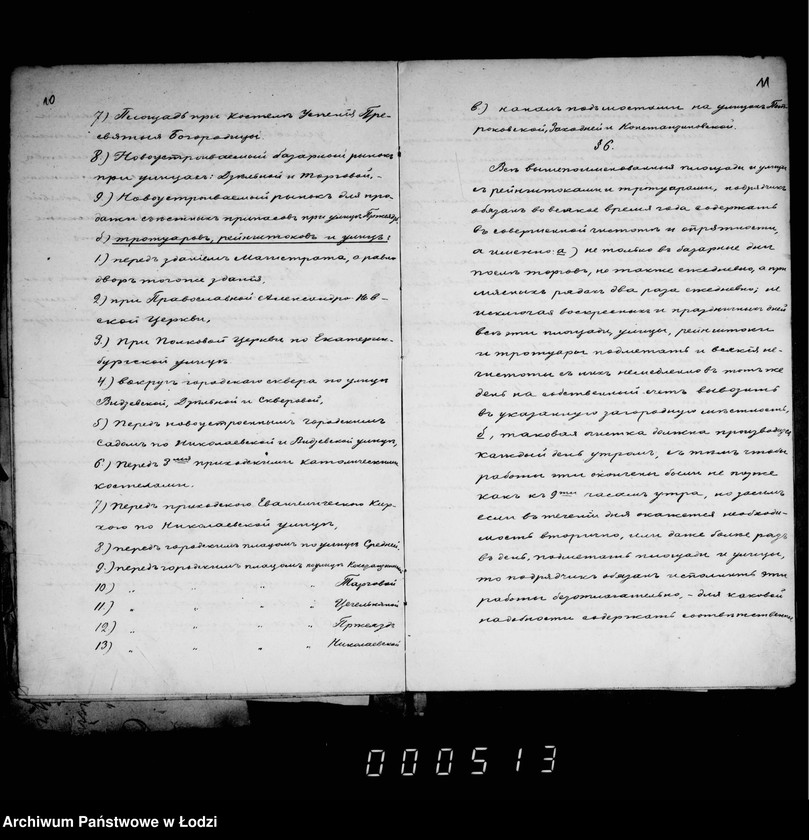 10
7) Площадь при костелѣ Успенія Пре-
святыя Богородицы.
8) Новоустраиваемый базарный рынокъ
при улицахъ: Дѣльной и Торговой, -
9) Новоустраиваемый рынокъ для про-
дажи съѣстныхъ припасовъ при улицѣ Пржеяздъ
б) тротуаровъ, рейнштоковъ и улицъ:
1) передъ зданіемъ Магистрата, а равно
дворъ тогоже зданія,
2) при Православной Александро-Нев-
ской Церкви,
3.) При Полковой Церкви по Екатерин-
бургской улицѣ
4) вокругъ городскаго сквера по улицѣ
Видзевской, Дѣльной и Скверовой,
5) Передъ новоустроеннымъ городскимъ
Садомъ по Николаевской и Видзевской улицѣ,
6) Передъ 3мя приходскими католическими
костелами.
7) Передъ приходскаго Евангелическаго Кир-
хою по Николаевской улицѣ,
8) передъ городскимъ плацомъ по улицѣ Средней,
9.) передъ городскимъ плацомъ по улицѣ
10) " " " " Тарговой
11) " " " " Цегельняной
12) " " " " Пржеяздъ
13) " " " " Николаевской
11
в.) каналъ подъ мостами на улицахъ Пет-
роковской, Заходней и Константиновской.
§ 6.
Всѣ вышепоименованныя площади и улицы
съ рейнштоками и тротуарами, подрядчикъ
обязанъ во всякое время года содержать
въ совершенной чистотѣ и опрятности,
а именно: а) не только въ базарные дни
послѣ торговъ, но также ежедневно, а при
мясныхъ рядахъ два раза ежедневно; не
исключая воскресныхъ и праздничныхъ дней
всѣ эти площади, улицы, рейнштоки
и тротуары подметать и всякія не-
чистоты съ нихъ немедленно въ тотъ же
день на собственный счетъ вывозить
въ указанную загородную мѣстность,
б, таковая очистка должна производиться
каждый день утромъ, съ тѣмъ чтобы
работы эти окончены были не позже
какъ къ 9ти часамъ утра, но засимъ
если въ теченіи дня окажется необходи-
мость вторично, или даже болѣе разъ
въ день, подметать площади и улицы,
то подрядчикъ обязанъ исполнить эти
работы безотлагательно, - для каковой
надобности содержать соотвѣтственное
000513
Archiwum Państwowe w Łodzi